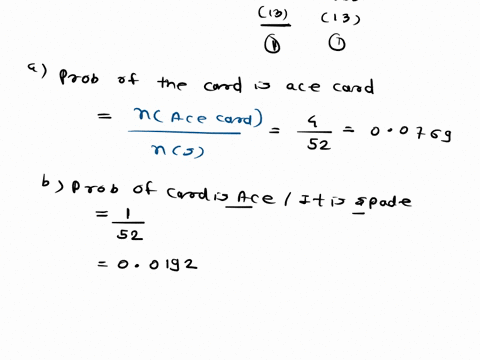 (13) (13)
① ①
a) Prob of the card is ace card
= n(Ace card) / n(s) = 4/52 = 0.0769
b) Prob of card is Ace / It is spade
= 1/52
= 0.0192